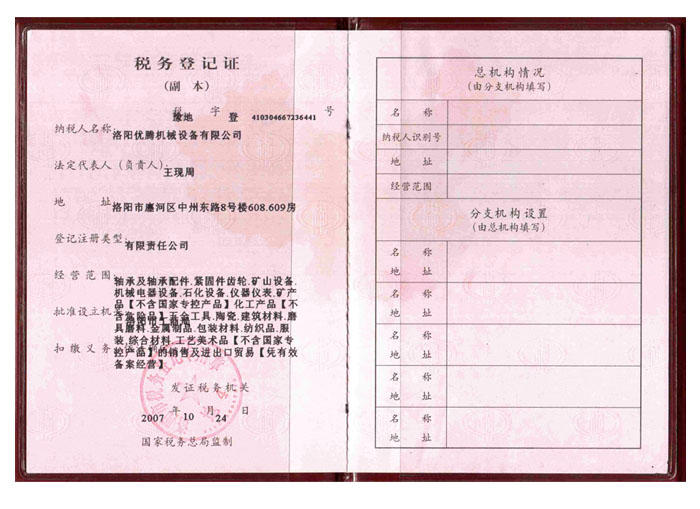 税务登记证
(副 本)
税 字 号
豫地 登 410304667236441
纳税人名称:
洛阳优腾机械设备有限公司
法定代表人 (负责人):
王现周
地 址
洛阳市廛河区中州东路8号楼608.609房
登记注册类型:
有限责任公司
经营范围:
轴承及轴承配件.紧固件齿轮.矿山设备.
机械电器设备.石化设备.仪器仪表.矿产
品【不含国家专控产品】化工产品【不
批准设立机
含危险品】五金工具.陶瓷.建筑材料.磨
具磨料.金属制品.包装材料.纺织品.服
装.综合材料.工艺美术品【不含国家专
扣缴义务
控产品】的销售及进出口贸易【凭有效
备案经营】
发证税务机关
2007 年 10 月 24 日
国家税务总局监制
总机构情况
(由分支机构填写)
名 称
纳税人识别号
地 址
经营范围
分支机构设置
(由总机构填写)
名 称
地 址
名 称
地 址
名 称
地 址
名 称
地 址
名 称
地 址